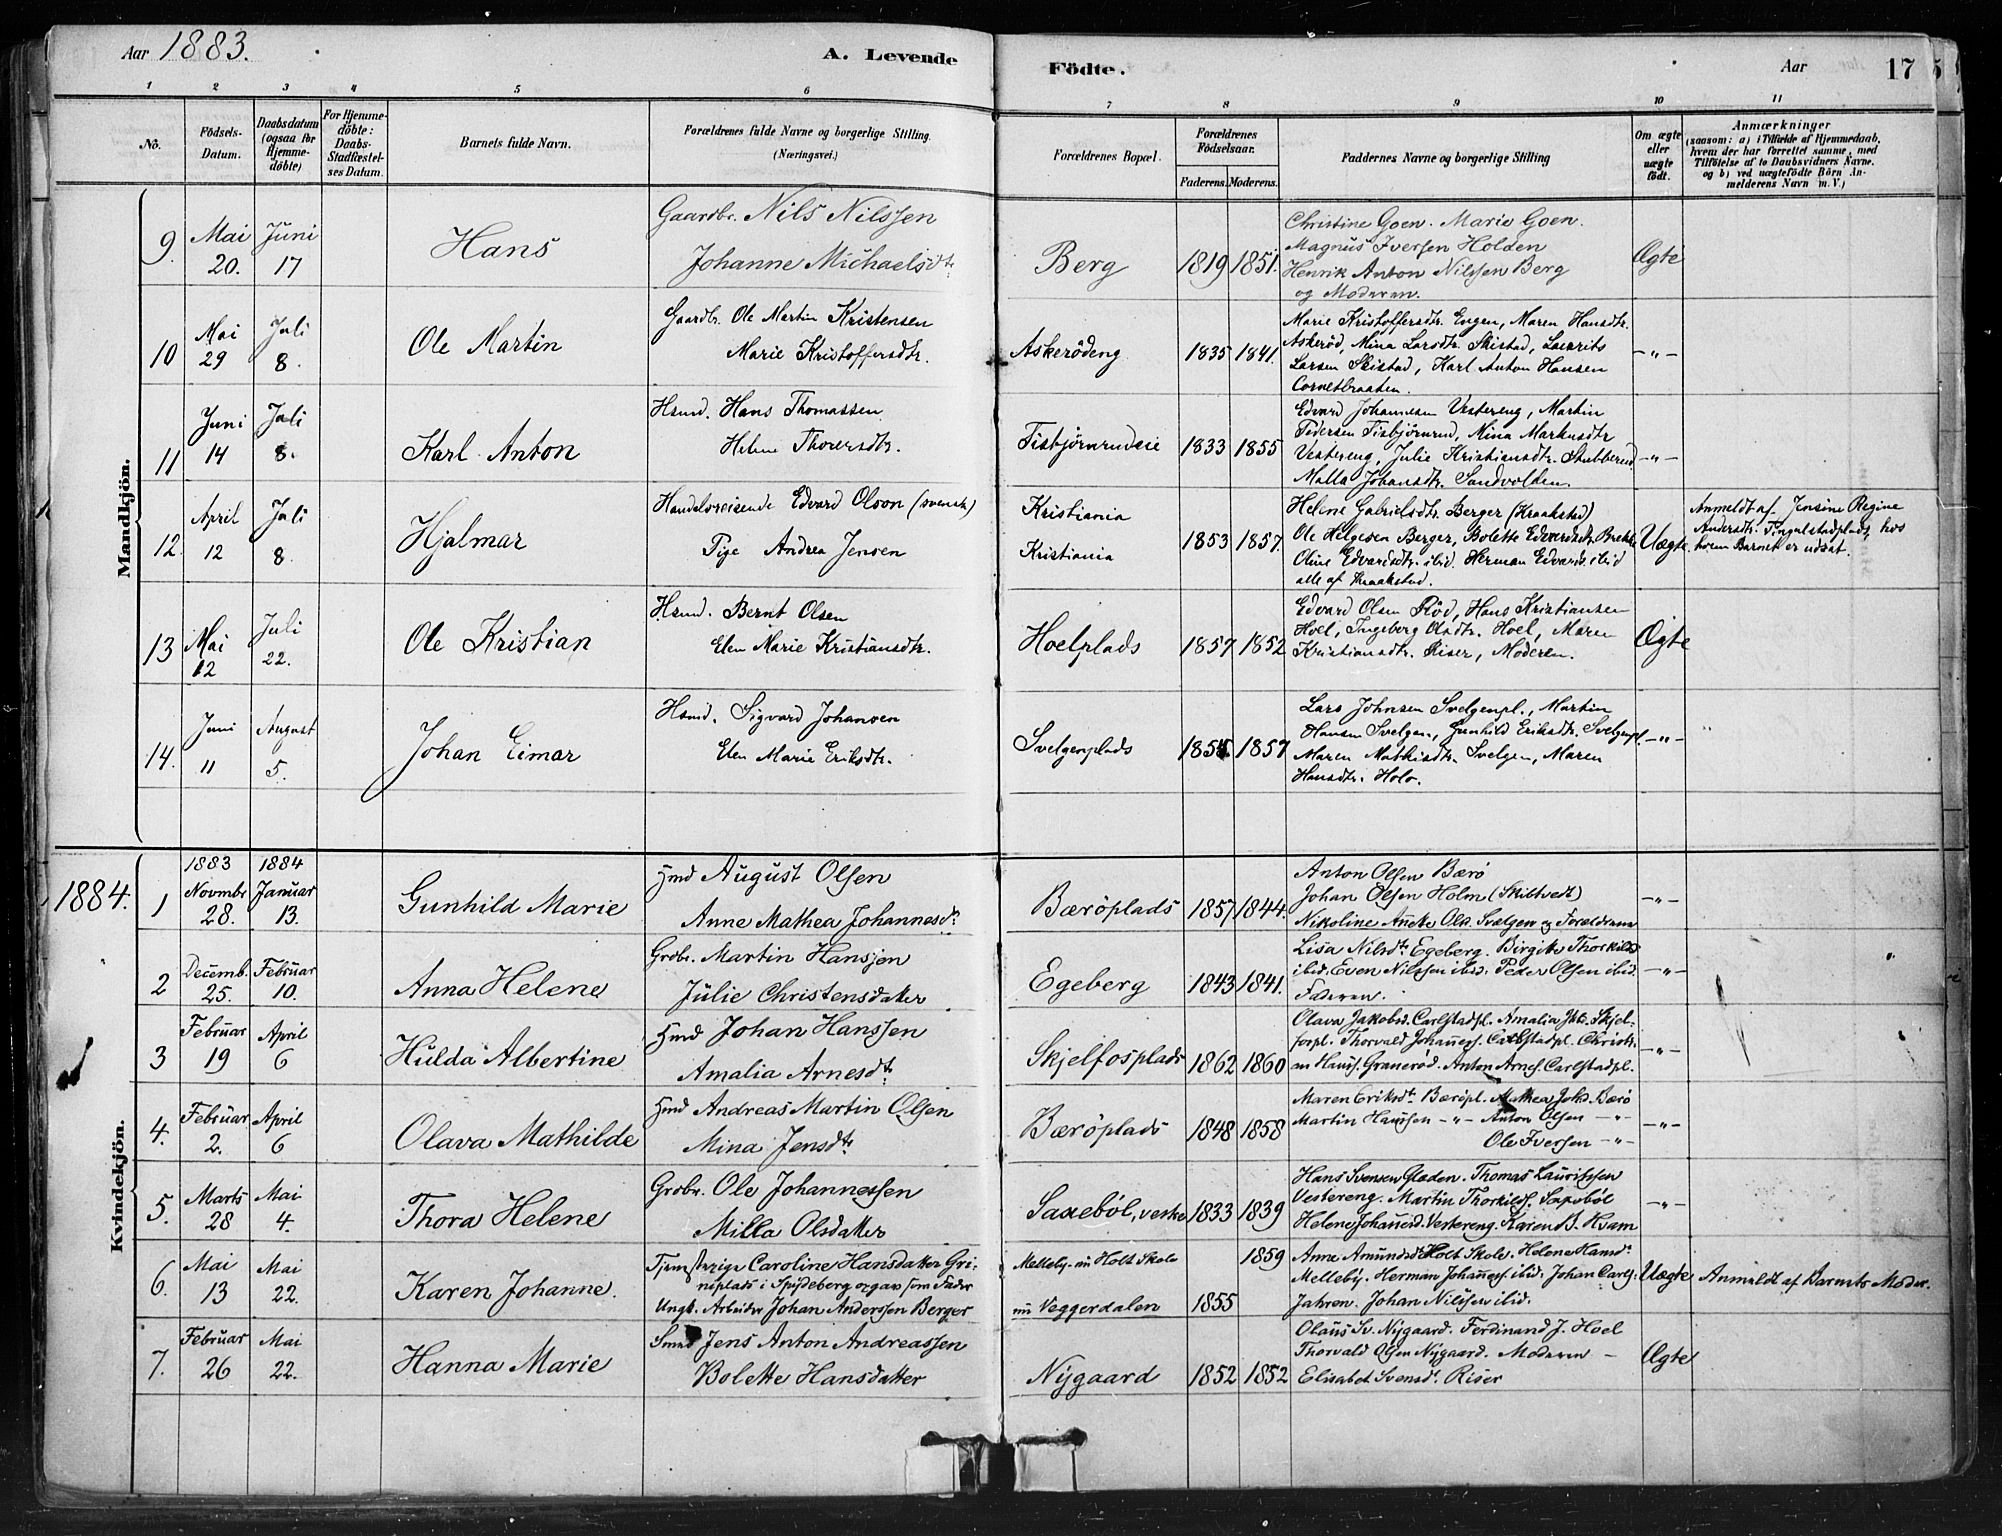 Aar 1883.
A. Levende
Födte.
Aar
17
1 2 3 4 5 6 7 8 9 10 11
No.
Födsels-Datum.
Daabsdatum (ogsaa for Hjemmedöbte)
For Hjemmedöbte: Daabs-Stadfæstelses Datum.
Barnets fulde Navn.
Forældrenes fulde Navne og borgerlige Stilling. (Næringsvei.)
Forældrenes Bopæl.
Forældrenes Födselsaar.
Faderens. Moderens.
Faddernes Navne og borgerlige Stilling
Om ægte eller uægte födt.
Anmærkninger
(saasom: a) i Tilfælde af Hjemmedaab, hvem der har forrettet samme, med Tilföielse af to Daabsvidners Navne, og b) ved uægtefödte Börn Anmelderens Navn m. V.)
Mandkjön.
9. Mai 20. Juni 17 Hans
Gaardbr. Nils Nilssen
Johanne Michaelsdtr.
Berg 1819 1851.
Christine Goen. Marie Goen.
Magnus Iversen Holden
Henrik Anton Nilssen Berg
og Moderen.
Ægte
10 Mai 29 Juli 8. Ole Martin
Gaardbr. Ole Martin Kristensen
Marie Kristoffersdtr.
Askerödeng 1835 1841.
Marie Kristoffersdtr. Engen, Maren Hansdtr.
Askerød, Mina Larsdtr. Skistad, Laurits
Larsen Skistad, Karl Anton Hansen
Cornetbraaten.
-"-
11 Juni 14 Juli 8. Karl Anton
Hsmd. Hans Thomassen
Helene Thoresdtr.
Fisbjörnrudeie 1833 1855
Edvard Johannesen Vestereng, Martin
Pedersen Fisbjörnrud, Mina Markusdtr
Vestereng, Julie Kristiansdtr. Stubberud
Malla Johansdtr. Sandvolden.
-"-
12. April 12 Juli 8 Hjalmar
Handelsreisende Edvard Olson (svensk)
Pige Andrea Jensen
Kristiania
Kristiania
1853 1857.
Helene Gabrielsdtr. Berger (Kraakstad)
Ole Helgesen Berger, Bolette Edvardsdtr. Brekke
Oline Edvardsdtr. ibid. Herman Edvards. ibid
alle af Kraakstad.
Uægte.
Anmeldt af Jensine Regine
Andersdtr. Fingalstadplads, hos
hvem Barnet er udsat.
13 Mai 12 Juli 22. Ole Kristian
Hsmd. Bernt Olsen
Elen Marie Kristiansdtr.
Hoelplads 1857 1852
Edvard Olsen Rød, Hans Kristiansen
Hoel, Ingeborg Olsdtr. Hoel, Maren
Kristiansdtr. Riser, Moderen.
Ægte
14. Juni 11 August 5. Johan Eimar
Hsmd. Sigvard Johansen
Elen Marie Eriksdtr.
Svelgenplads 1857
Lars Johnsen Svelgenpl., Martin
Hansen Svelgen, Gunhild Eriksdtr. Svelgenpl.
Maren Mathisdtr. Svelgen, Maren
Hansdtr. Holo.
-"-
1884.
Kvindekjön.
1 1883 Novmbr 28. 1884 Januar 13. Gunhild Marie
Hmd August Olsen
Anne Mathea Johannesdtr
Bæröplads 1857 1844.
Anton Olsen Bærö
Johan Olsen Holm (Skiltvedt)
Nikoline Aneke Olsd. Svelgen og Forældrene
-"-
2 Decemb. 25. Februar 10. Anna Helene
Grdbr. Martin Hansen
Julie Christensdatter
Egeberg 1843 1841.
Lisa Nilsdtr Egeberg. Birgitte Thorkilds.
ibid. Even Nilssen ibid. Peder Olsen ibid.
Faderen.
-"-
3 Februar 19 April 6 Hulda Albertine
Hmd Johan Hanssen
Amalia Arnesdtr
Skjelfosplads 1862 1860
Olava Jakobsd. Carlstadpl. Amalia Skjel-
fospl. Thorvald Johannes. Carlstadpl. Christi-
an Hanss. Granerød. Anton Arnes. Carlstadpl.
-"-
4. Februar 2. April 6 Olava Mathilde
Hmd Andreas Martin Olsen
Mina Jensdtr
Bæröplads 1848 1858
Maren Eriksdtr Bæröpl. Mathea Johs. Bærö
Martin Hanssen -"- Anton Olsen -"-
Ole Iversen -"-
-"-
5. Marts 28 Mai 4. Thora Helene
Grdbr. Ole Johannessen
Milla Olsdatter
Saxeböl, vestre 1833 1839
Hans Svensen Glæden. Thomas Laurissen
Vestereng. Martin Thorkilds. Saxeböl
Helene Johannesd. Vestereng. Karen B. Hvam
-"-
6. Mai 13 Mai 22. Karen Johanne.
Tjenestepige Caroline Hansdatter Gri-
niplads i Spydeberg og som Fader
Ungk. Arbeider Johan Anderssen Berger
Melleby nu Holt Skole
nu Veggerdalen
1855 1859
Anne Amundsd Holt Skole. Helene Hansd.
Melleby. Herman Johannes. ibid. Johan Carls.
Jahren. Johan Nilssen ibid.
Uægte
Anmeldt af Barnets Moder.
7. Februar 26 Mai 22. Hanna Marie
Smed Jens Anton Andreassen
Bolette Hansdatter
Nygaard 1852 1852
Olaus Sv. Nygaard. Ferdinand J. Hoel
Thorvald Olsen Nygaard. Moderen -
Elisabet Svensd. Riser
Ægte